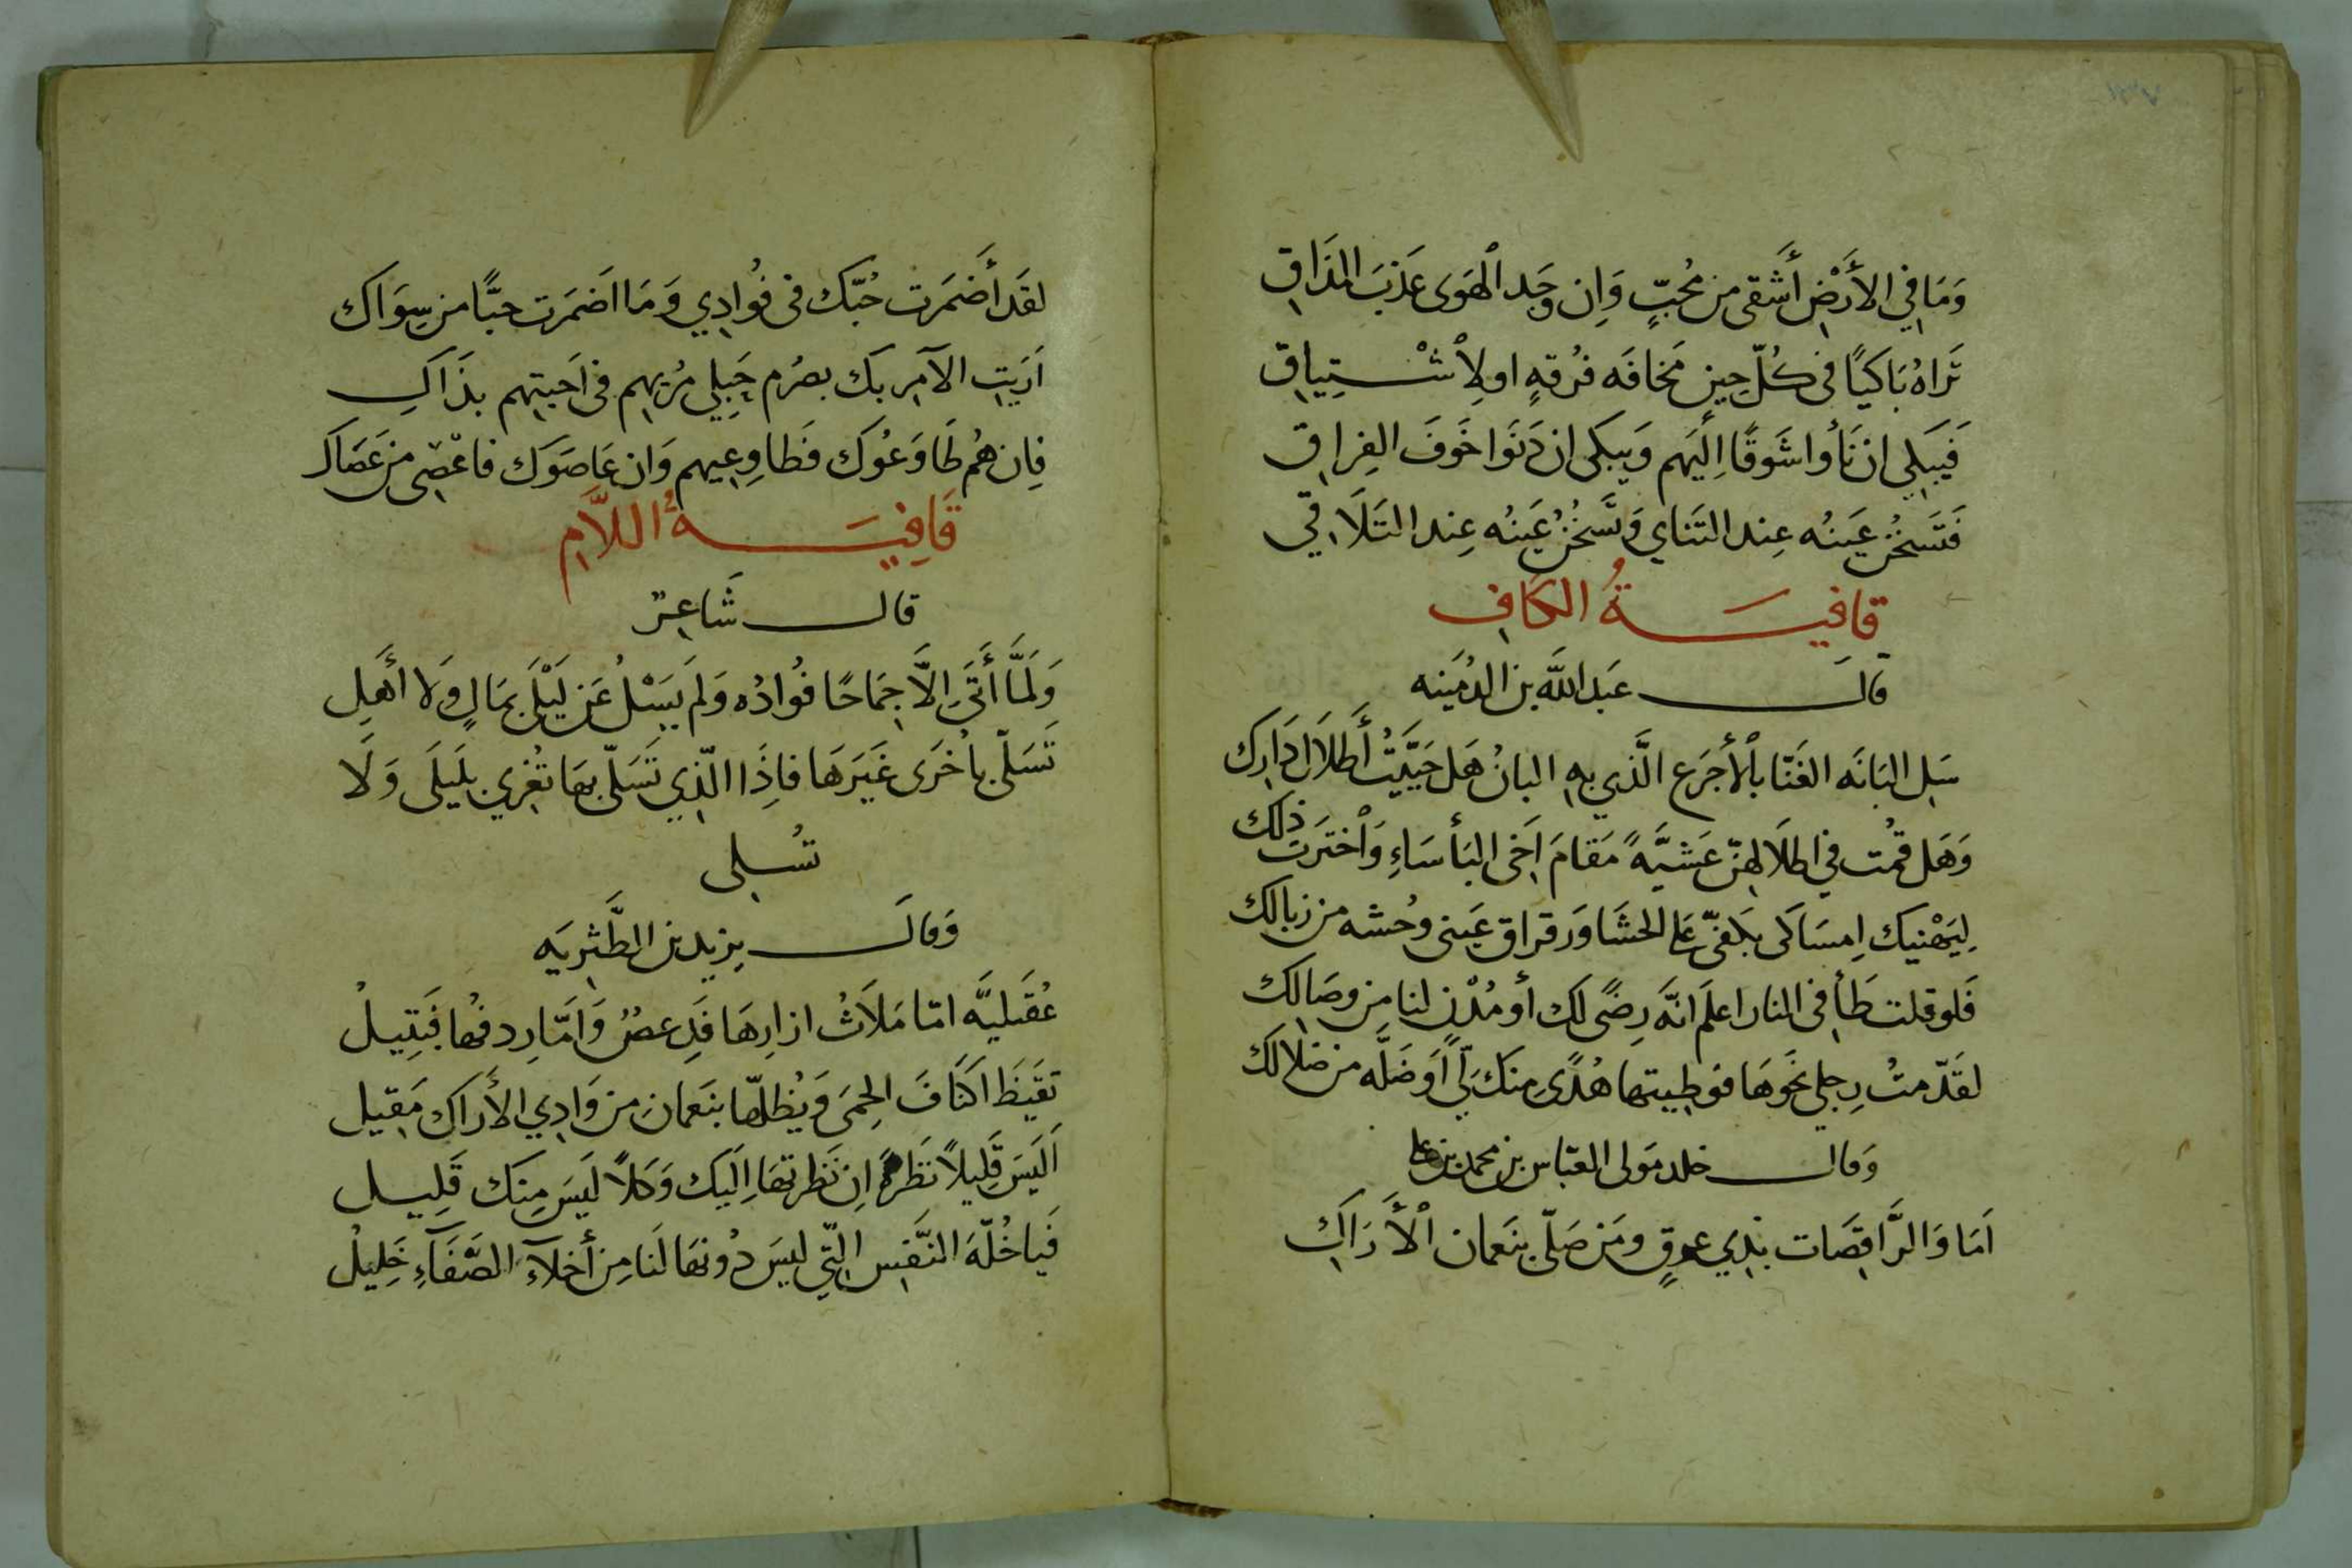 وَمَا فِي الأَرْضِ أَشَقى من مُحِبٍّ وَاِن وَجَد الْهَوَى عَذبَ المذَاقِ
تَرَاهُ بَاكيًا فى كُلّ حِينٍ مَخافَه فُرقهٍ اولِاْشْتِيِاقِ
فَيَبكِي ان نَأوا شَوقًا اِلَيهم وَيبكى ان دَنَوا خَوفَ الفِراقِ
فَتَسَخُن عَينُه عِند التَنايِ وَتَسخُنُ عَينُه عِند التَلَاقِي
قافيَةُ الكَافِ
قالَ عَبد اللَّه بن الدُمَينه
سَلِ البَانَه الغَنّا باْلأَجرَعِ الَّذي بِهِ البانُ هَل حَيَّيتُ أَطلَالَ دَارِكِ
وَهَل قُمت في اطلَالِهنّ عَشيَّهً مَقامَ اَخى البَأسَاءِ وَاْخترَت ذلِك
لِيَهْنيك اِمسَاكى بكَفىّ عَلى الحَشَا وَرقراق عَينى وحُشه من زيالك
فَلو قلت طَأ فى النار اعلَم انَّه رِضًى لَك أو مُدْنٍ لنا من وصَالِك
لقَدّمتُ رِجلى نحَوَهَا فوطِيتها هُدًى مِنك لىِ اَو ضَلَّه من ضلالك
وَقال خلد مَولى العبّاس بن محمد بن على
اَمَا وَالرَّاقِصَات بِذِي عِرقٍ ومَن صَلّى بِنَعمان الْأَرَاكِ
لقَد أَضمَرت حُبّك فى فُوادِي وَمَا اضمَرت حبًّا من سِوَاكِ
اَرَيتِ الآمِريك بصرُم حَبِلي مُرِيهم فى اَحبتِهم بذَاكِ
فِان هُم طَاوَعُوكَ فَطاوِعِيهم وَان عَاصَوكَ فاعْصِى من عَصَاكِ
قَافِيَةُ اللاَّمِ
قال شَاعِرٌ
وَلَمَّا أَتَى اِلَّا جِمَاحًا فوُادُه وَلَم يَسْلُ عَن لَيْلَى بمَالٍ وَلا أَهلِ
تَسَلّى باُخرَى غَيَرهَا فاِذَا الّذِي تَسَلّى بِهَا تُغرِي بِلَيلَى وَلَا
تسُلِى
وَقالَ يزيد بن الطَّثرِيَه
عُقَيليَّه امّا مَلَاثُ ازارِهَا فَدِعصٌ وَاَمّا رِدفُها فَبَتِيلُ
تَقَيَظَ اكنَافَ الحِمَى وَيُظلّها بنَعمانِ من وَادِي الأَراكِ مَقيل
اَلَيسَ قَلِيلاً نَظرة اِن نَظرتهَا اِلَيك وَكَلّا لَيسَ مِنك قَلِيل
فَيا خُلّهَ النَّفسِ الّتي ليسَ دُونهَا لَنا مِن أَخلآءِ الصَّفَآءِ خَلِيلُ